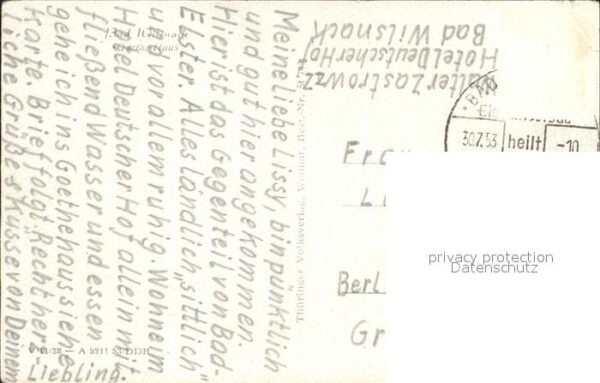 Meine liebe Lissy, bin pünktlich
und gut hier angekommen.
Hier ist das Gegenteil von Bad-
Elster. Alles ländlich „sittlich"
und vor allem ruhig. Wohne im
Hotel Deutscher Hof allein mit
fließend Wasser und essen
gehe ich ins Goethehaus siehe
Karte. Brief folgt. Recht herz-
liche Grüße & Küsse von Deinem
Liebling.
Walter Zastrow zz
Hotel Deutscher Hof
Bad Wilsnack
Bad Wilsnack
Goethehaus
Thüringer Volksverlag, Weimar, Best.-Nr.
V 11/28 — A 5211 53/DDR
BAD
30.7.53
heilt
-10
Frau
Berl
Gr
privacy protection
Datenschutz